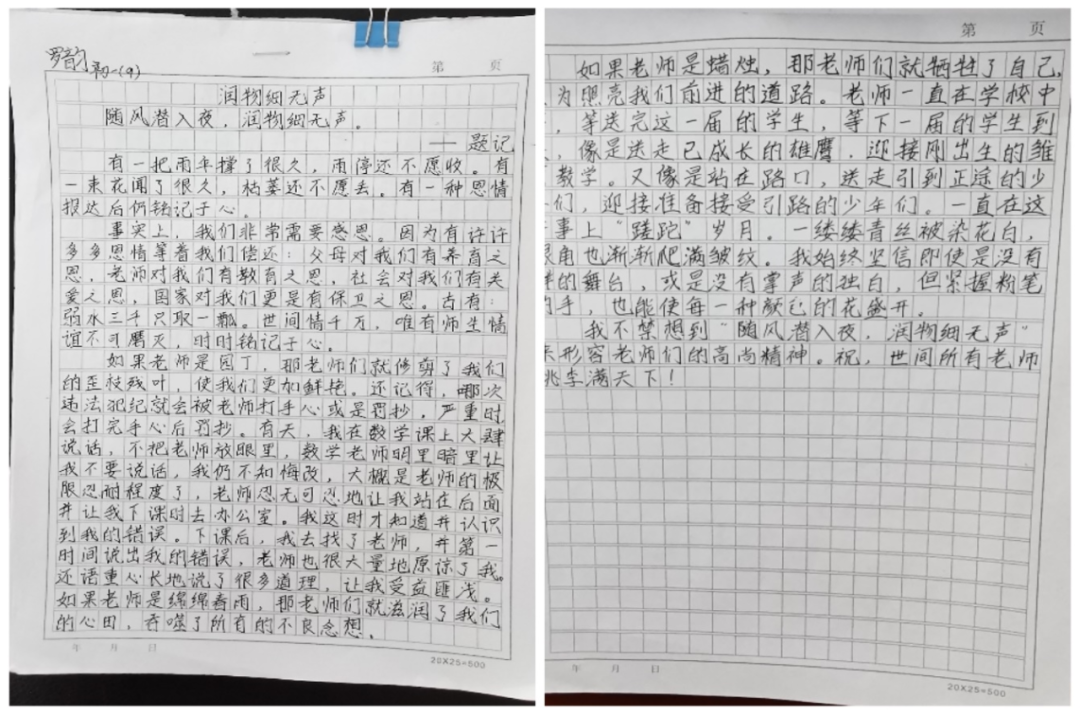 罗韵
初一(9)
第 页
润物细无声
随风潜入夜,润物细无声。
——题记
有一把雨伞撑了很久,雨停还不愿收。有
一束花闻了很久,枯萎还不愿丢。有一种恩情
报达后仍铭记于心。
事实上,我们非常需要感恩。因为有许许
多多恩情等着我们偿还:父母对我们有养育之
恩,老师对我们有教育之恩,社会对我们有关
爱之恩,国家对我们更是有保卫之恩。古有:
弱水三千只取一瓢。世间情千万,唯有师生情
谊不可磨灭,时时铭记于心。
如果老师是园丁,那老师们就修剪了我们
的歪枝残叶,使我们更加鲜艳。还记得,哪次
违法犯纪就会被老师打手心或是罚抄,严重时
会打完手心后罚抄。有天,我在数学课上大肆
说话,不把老师放眼里,数学老师明里暗里让
我不要说话,我仍不知悔改,大概是老师的极
限忍耐程度了,老师忍无可忍地让我站在后面
并让我下课时去办公室。我这时才知道并认识
到我的错误。下课后,我去找了老师,并第一
时间说出我的错误,老师也很大量地原谅了我。
还语重心长地说了很多道理,让我受益匪浅。
如果老师是绵绵春雨,那老师们就滋润了我们
的心田,吞噬了所有的不良念想。
年 月 日
20X25=500
第 页
如果老师是蜡烛,那老师们就牺牲了自己,
为照亮我们前进的道路。老师一直在学校中
,等送完这一届的学生,等下一届的学生到
,像是送走已成长的雄鹰,迎接刚出生的雏
教学。又像是站在路口,送走引到正途的少
们,迎接准备接受引路的少年们。一直在这
事上“蹉跎”岁月。一缕缕青丝被染花白,
眼角也渐渐爬满皱纹。我始终坚信即使是没有
的舞台,或是没有掌声的独白,但紧握粉笔
的手,也能使每一种颜色的花盛开。
我不禁想到“随风潜入夜,润物细无声”
来形容老师们的高尚精神。祝,世间所有老师
桃李满天下!
年 月 日
20X25=500